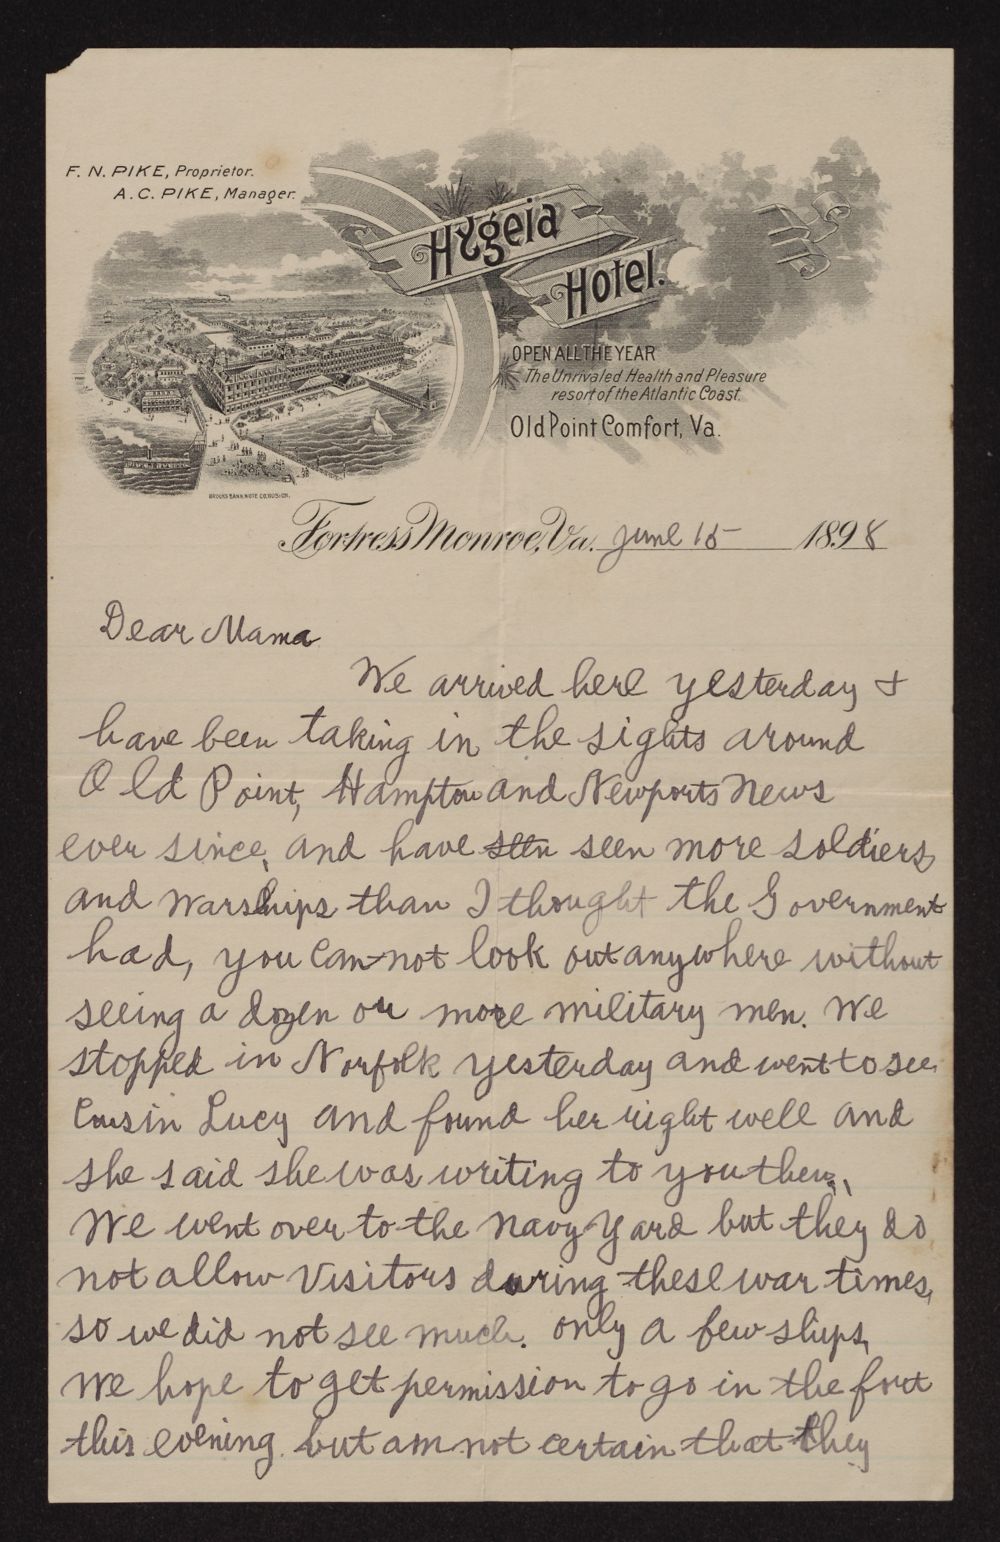 F. N. PIKE, Proprietor.
A. C. PIKE, Manager.
Hygeia
Hotel.
OPEN ALL THE YEAR
The Unrivaled Health and Pleasure
resort of the Atlantic Coast.
Old Point Comfort, Va.
BROOKS BANK NOTE CO. BOSTON.
Fortress Monroe, Va. June 15 1898
Dear Mama
We arrived here yesterday &
have been taking in the sights around
Old Point, Hampton and Newports News
ever since, and have seen seen more soldiers
and warships than I thought the Government
had, you can not look out anywhere without
seeing a dozen or more military men. We
stopped in Norfolk yesterday and went to see
Cousin Lucy and found her right well and
she said she was writing to you then,
We went over to the Navy Yard but they do
not allow Visitors during these war times,
so we did not see much. only a few ships,
We hope to get permission to go in the fort
this evening. but am not certain that they